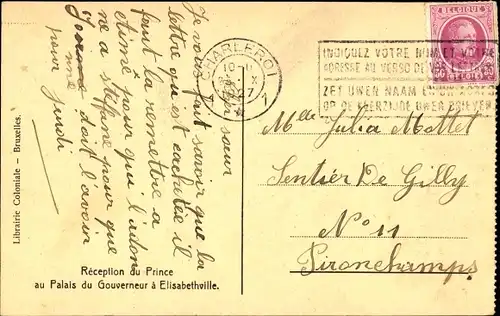 Je vous fait savoir que la
lettre qui est cachetée il
faut la remettre a
etimé pour qui l'adon
ne a Stefanie pour que
doit l'avoir
pour jeudi
Librairie Coloniale — Bruxelles.
Réception du Prince
au Palais du Gouverneur à Elisabethville.
CHARLEROI
10-11
X
27
1 1
BELGIQUE
INDIQUEZ VOTRE NOM ET VOTRE
ADRESSE AU VERSO DE
ZET UWEN NAAM EN UW ADRES
OP DE KEERZIJDE UWER BRIEVEN
Mlle Julia Mottet
Sentier De Gilly
No 11
Pironchamps